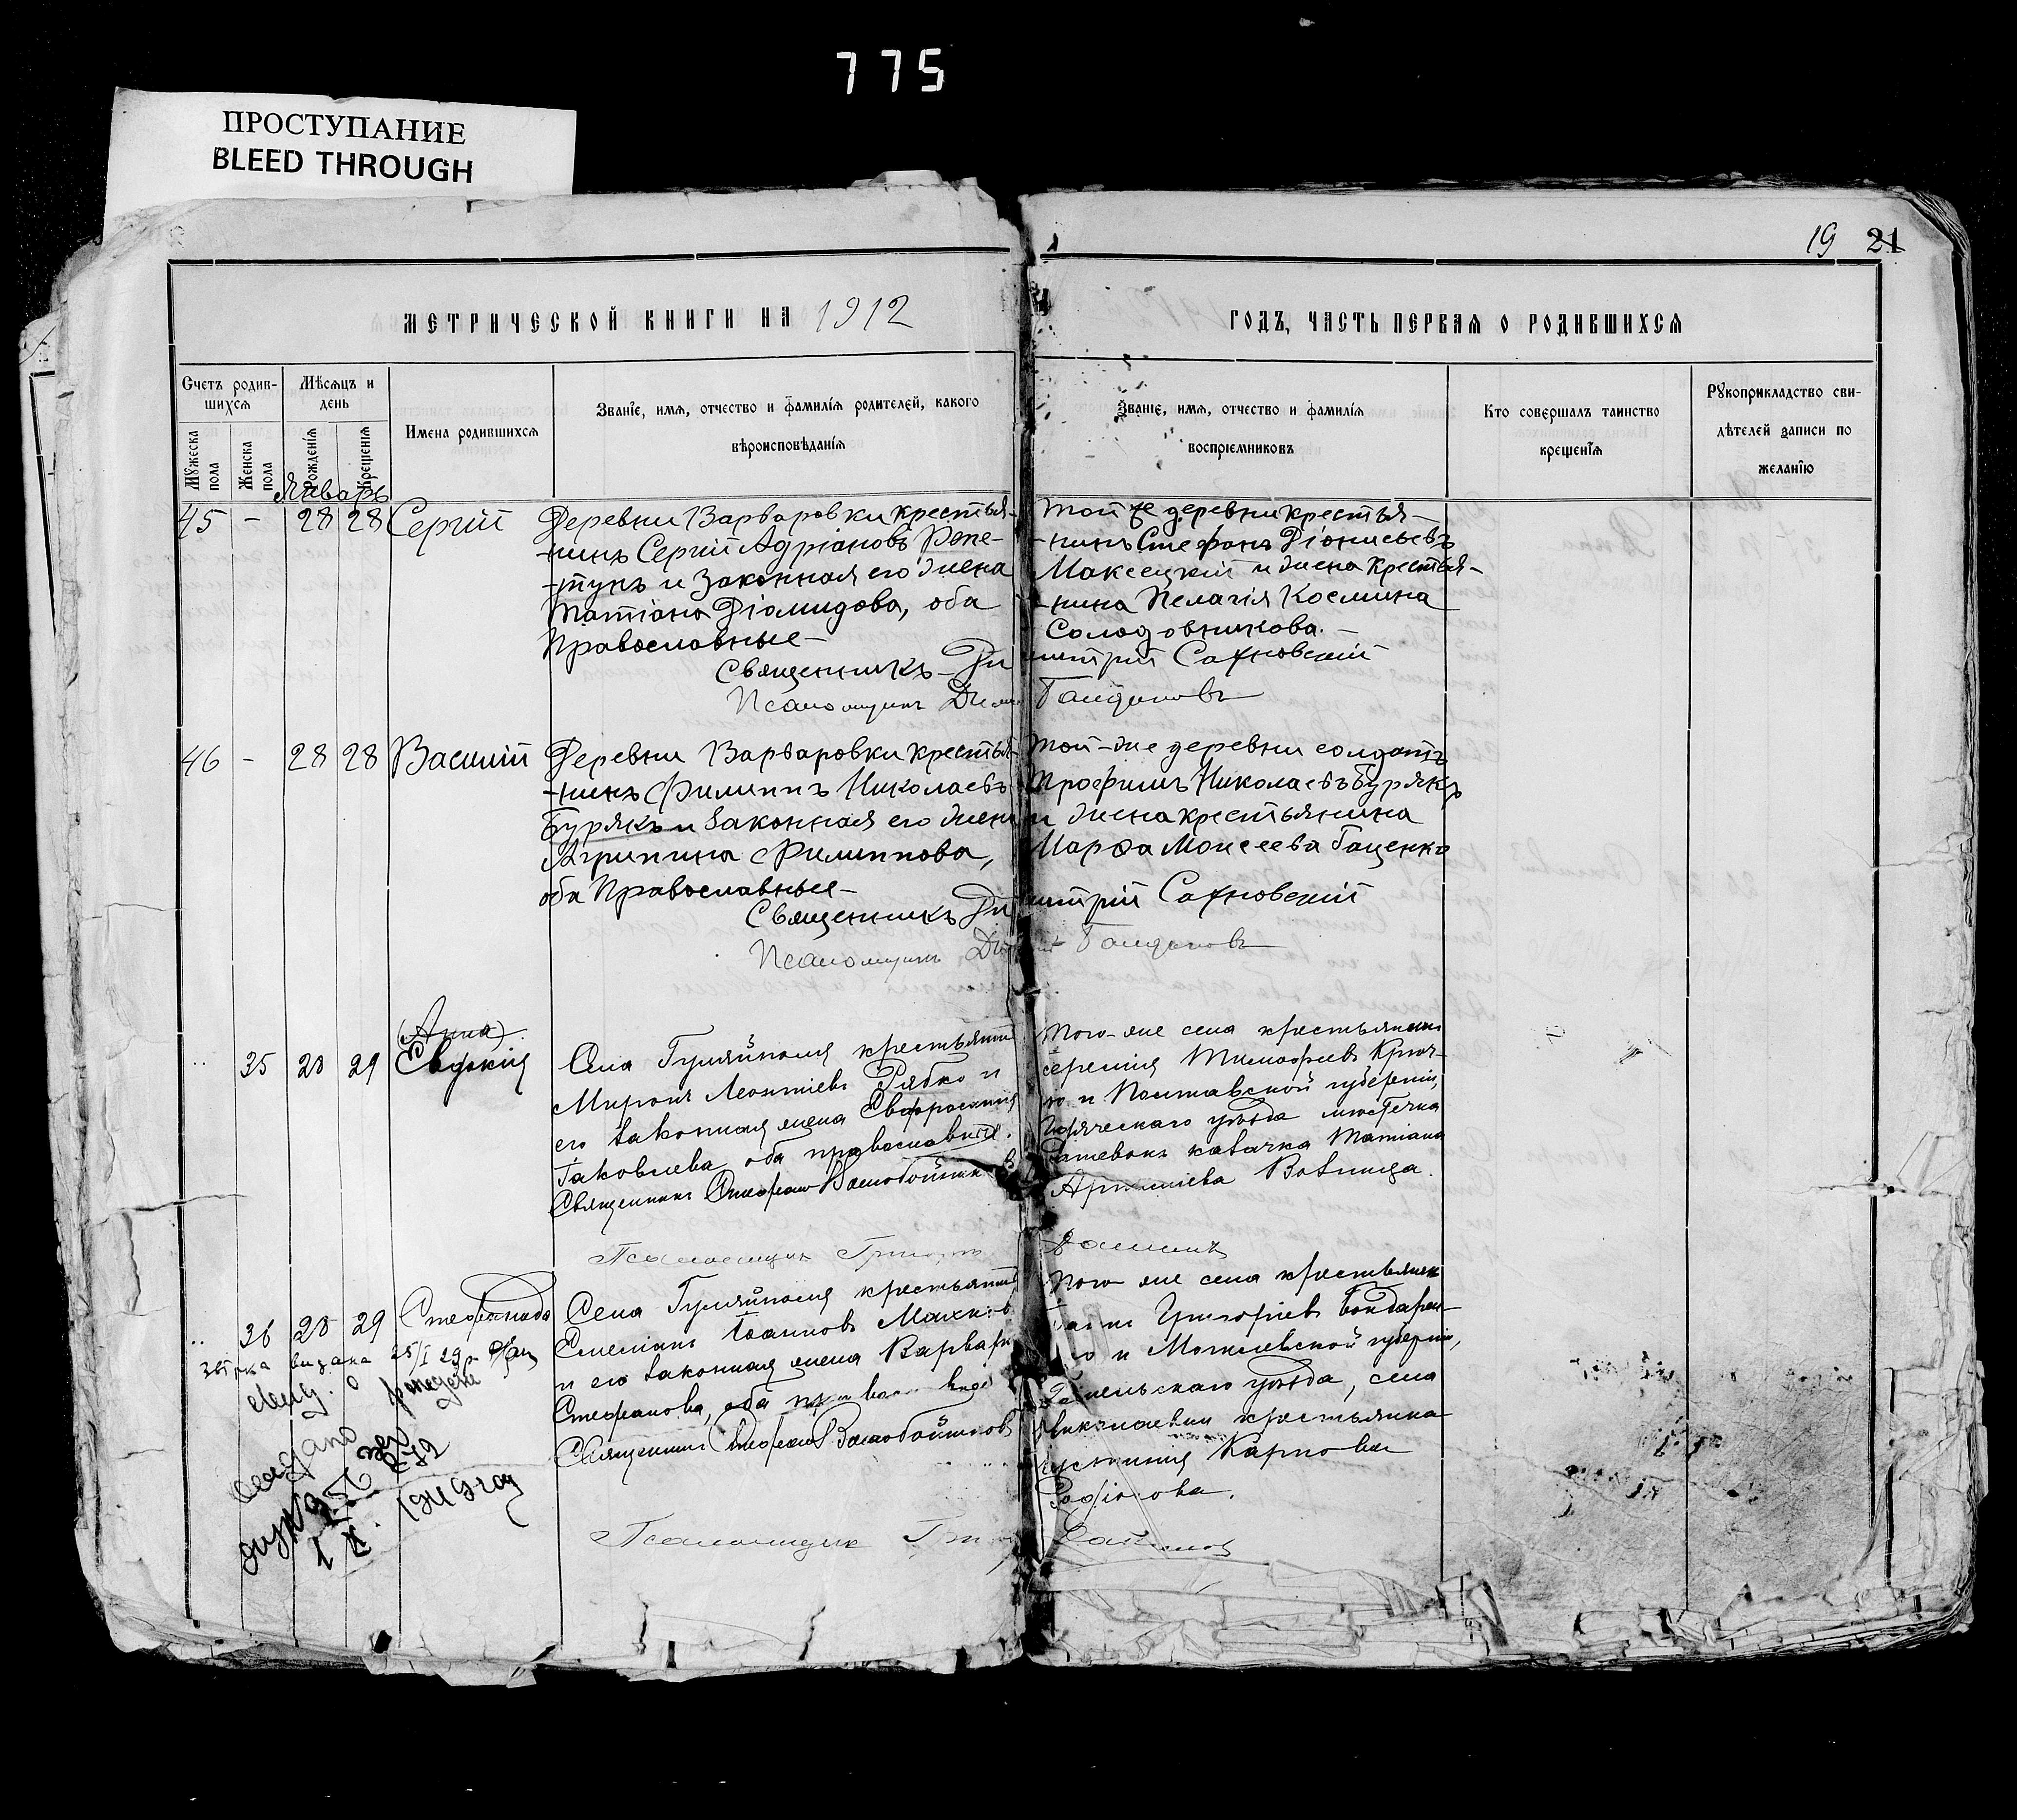 775
ПРОСТУПАНИЕ
BLEED THROUGH
19 21
МЕТРИЧЕСКОЙ КНИГИ НА 1912
ГОДЪ, ЧАСТЬ ПЕРВАЯ О РОДИВШИХСЯ
Счетъ родив-
шихся
Мужеска пола
Женска пола
Мѣсяцъ и
день
Рожденія
Крещенія
Имена родившихся
Званіе, имя, отчество и фамилія родителей, какого
вѣроисповѣданія
Званіе, имя, отчество и фамилія
воспріемниковъ
Кто совершалъ таинство
крещенія
Рукоприкладство сви-
дѣтелей записи по
желанію
Январь
45 - 28 28 Сергій
Деревни Варваровки крестья-
-нинъ Сергій Адріановъ Репе-
-тунъ и законная его жена
Татіана Діомидова, оба
Православные-
Той же деревни крестья-
-нинъ Стефанъ Діонисьевъ
Максецкій и жена крестья-
-нина Пелагія Космина
Солодовникова.-
Священникъ Димитрій Сахновскій
Псаломщикъ
46 - 28 28 Василій
Деревни Варваровки крестья-
-нинъ Филиппъ Николаевъ
Бурякъ и законная его жена
Агрипина Филиппова,
оба Православные-
Той-же деревни солдатъ
Трофимъ Николаевъ Бурякъ
и жена крестьянина
Марѳа Моисеева Гаценко
Священникъ Димитрій Сахновскій
Псаломщикъ
(Анна)
35 28 29 Евдокія
Села Гуляйполя крестьянинъ
Миронъ Леонтіевъ Рябко и
его законная жена Евфросинія
Іаковлева, оба православные.
Священникъ Стефанъ Воскобойниковъ
Того-же села крестьянинъ
Тимофеевъ Крюч-
ко и Полтавской губерніи,
уѣзда мѣстечка
козачка Татіана
Вовница.
Псаломщикъ
36 28 29 Стефанида
Села Гуляйполя крестьянинъ
Емеліанъ Іоанновъ Махновъ
и его законная жена Варвара
Стефанова, оба православные
Священникъ Стефанъ Воскобойниковъ
Того-же села крестьянинъ
Григоріевъ Бондарен-
ко и Могилевской губерніи,
уѣзда, села
крестьянка
Карпова
Псаломщикъ
видана 25/I 29р.